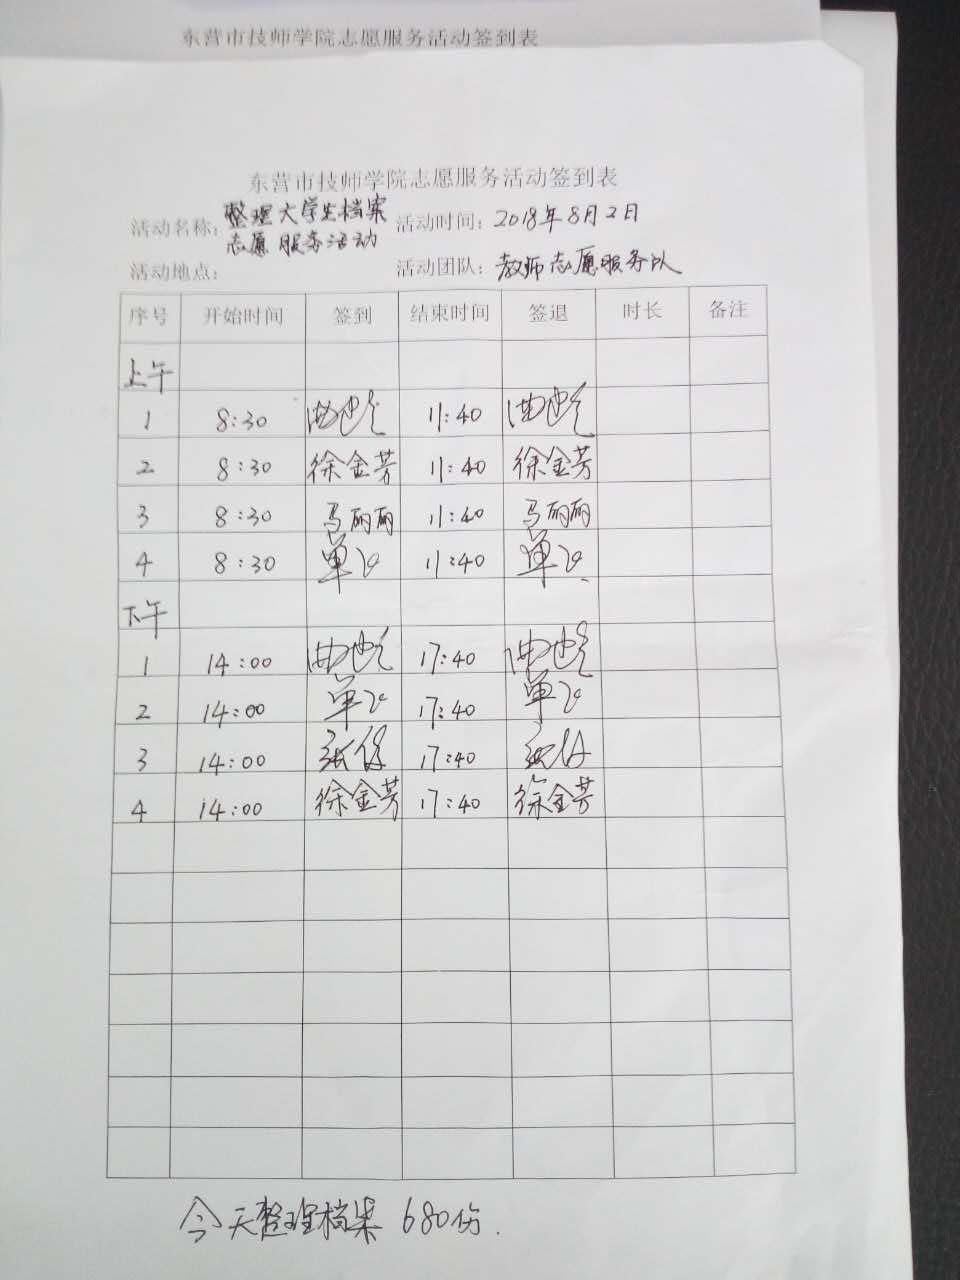 东营市技师学院志愿服务活动签到表
东营市技师学院志愿服务活动签到表
活动名称:整理大学生档案志愿服务活动 活动时间:2018年8月2日
活动地点: 活动团队:教师志愿服务队
序号 开始时间 签到 结束时间 签退 时长 备注
上午
1 8:30 11:40
2 8:30 徐金芳 11:40 徐金芳
3 8:30 马丽丽 11:40 马丽丽
4 8:30 单 11:40 单
下午
1 14:00 17:40
2 14:00 单 17:40 单
3 14:00 张 17:40 张
4 14:00 徐金芳 17:40 徐金芳
今天整理档案680份.